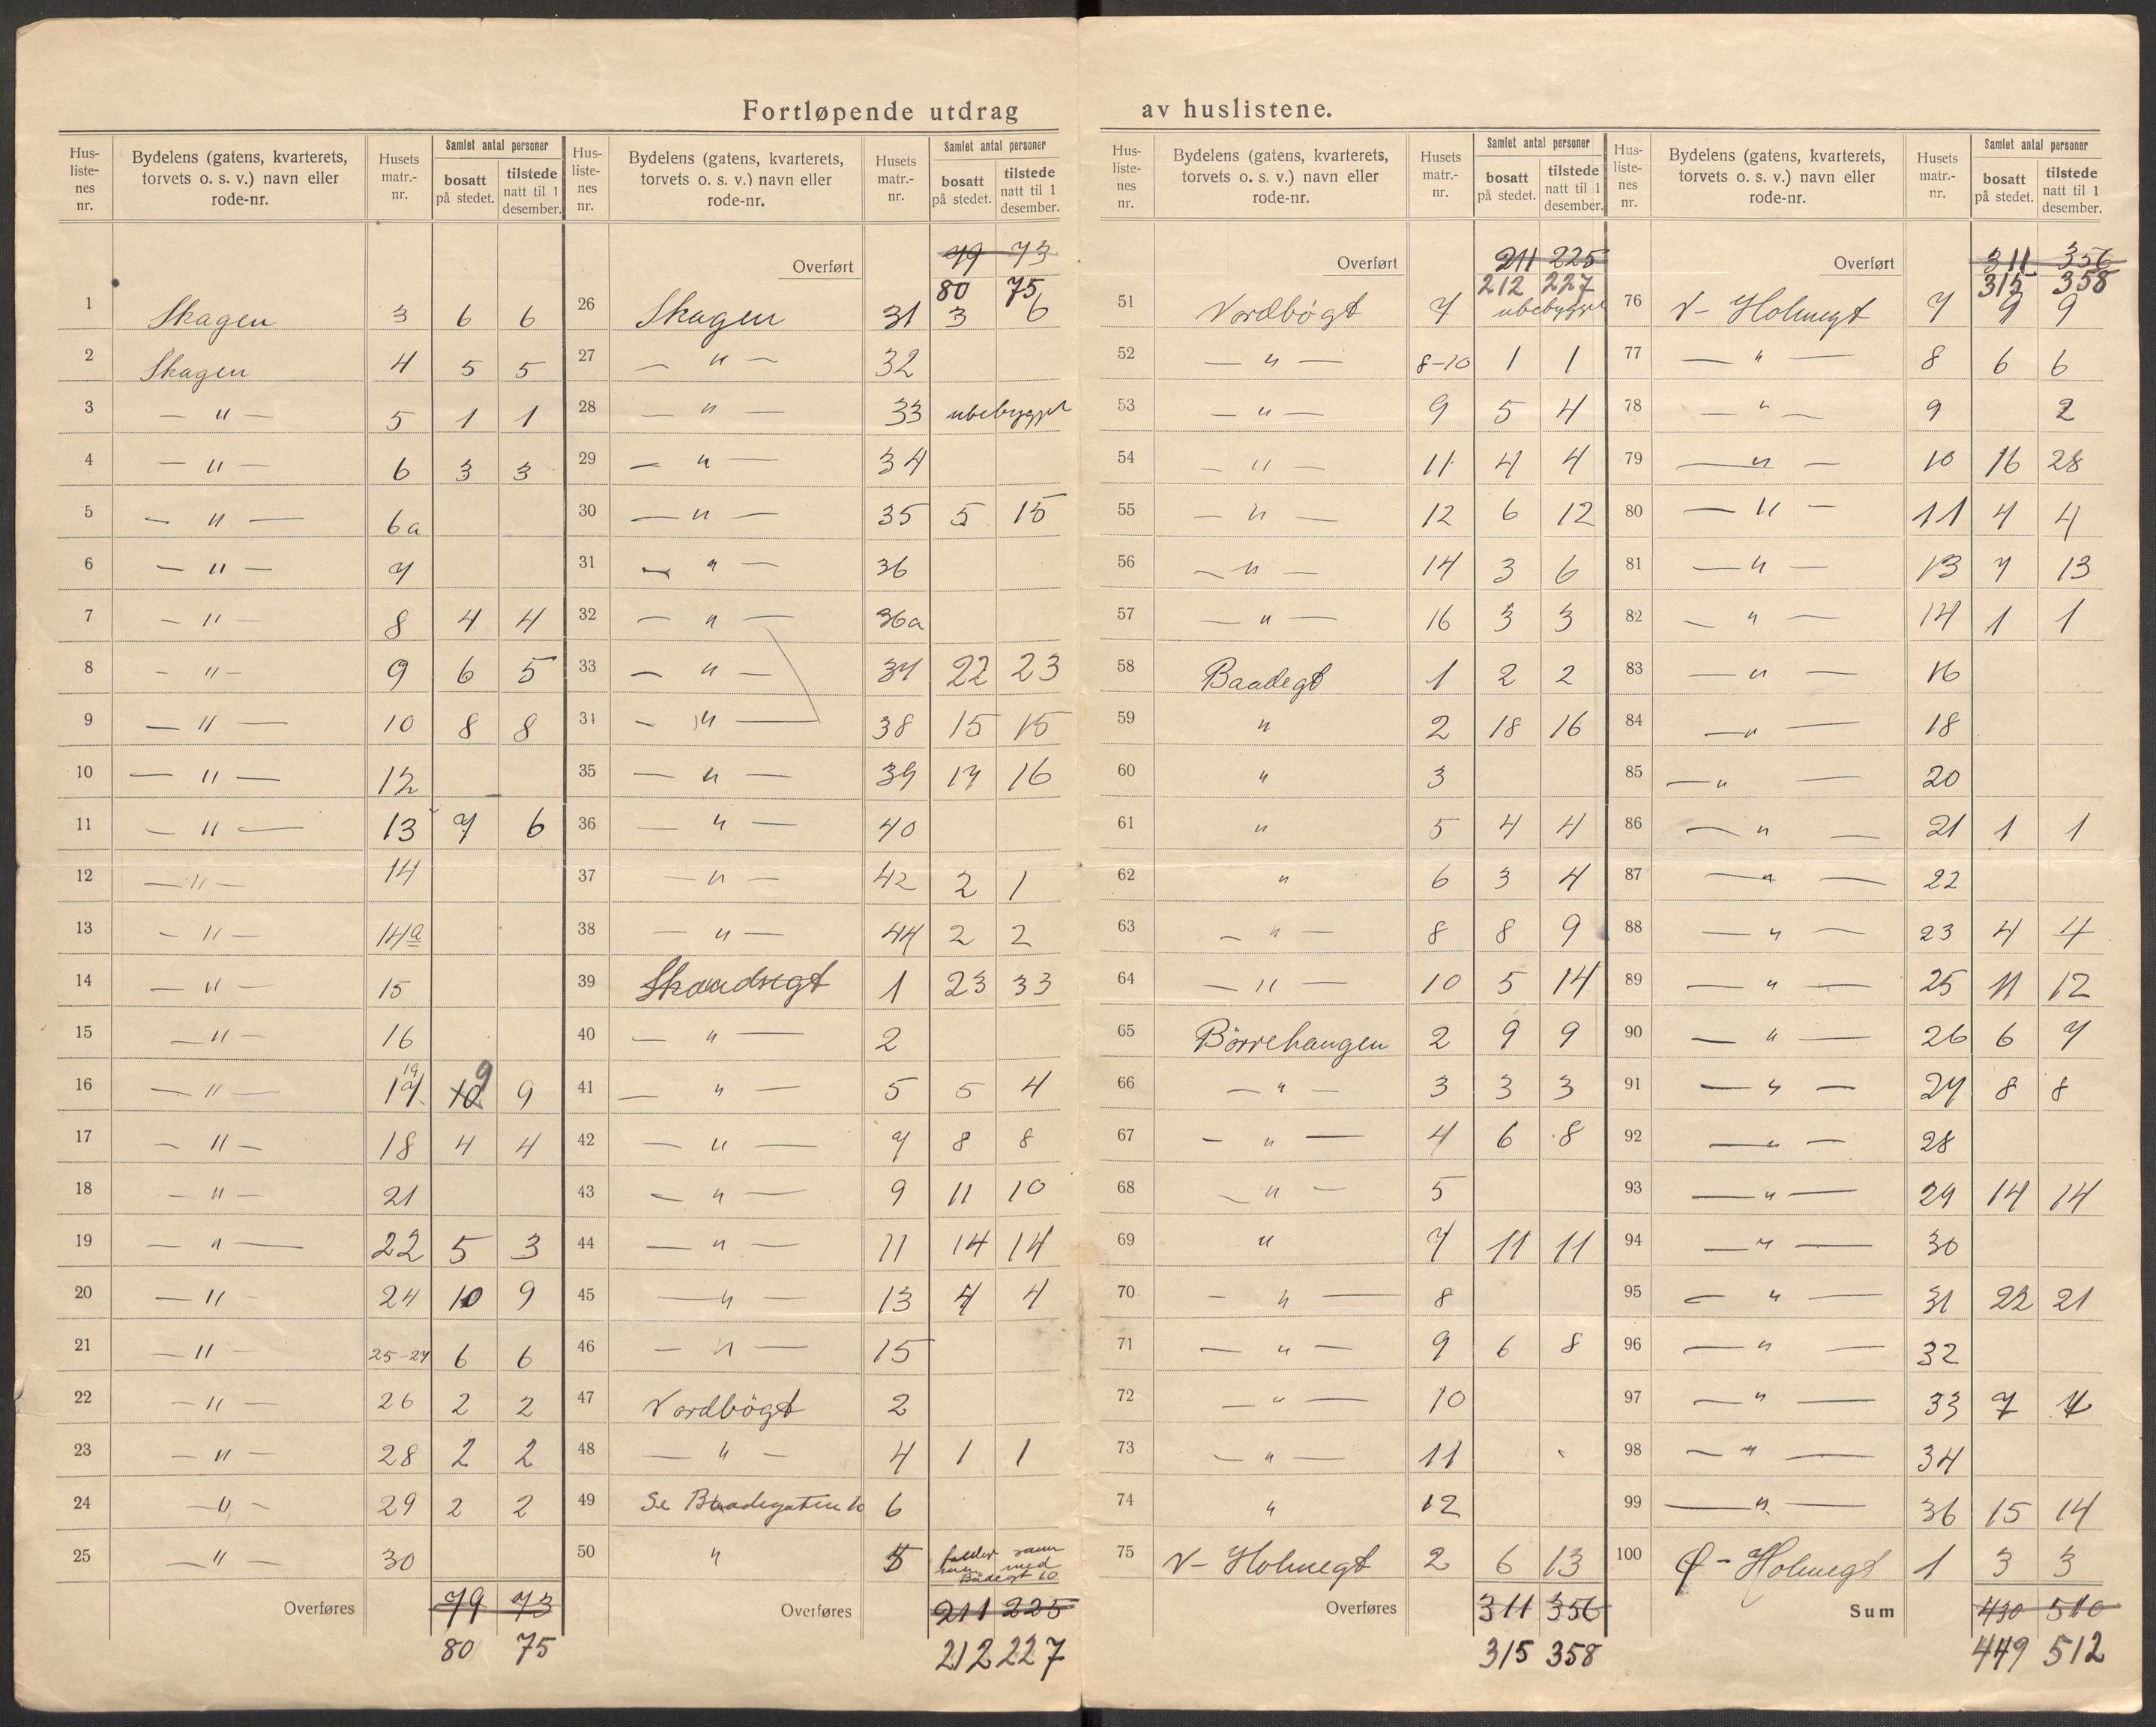 Fortløpende utdrag av huslistene.
Hus-listenes nr. | Bydelens (gatens, kvarterets, torvets o. s. v.) navn eller rode-nr. | Husets matr.-nr. | Samlet antal personer: bosatt på stedet. | tilstede natt til 1 desember.
1 Skagen 3 6 6
2 Skagen 4 5 5
3 — " — 5 1 1
4 — " — 6 3 3
5 — " — 6a
6 — " — 7
7 — " — 8 4 4
8 — " — 9 6 5
9 — " — 10 8 8
10 — " — 12
11 — " — 13 7 6
12 — " — 14
13 — " — 14a
14 — " — 15
15 — " — 16
16 — " — 17 19 10 9 9
17 — " — 18 4 4
18 — " — 21
19 — " — 22 5 3
20 — " — 24 10 9
21 — " — 25-27 6 6
22 — " — 26 2 2
23 — " — 28 2 2
24 — " — 29 2 2
25 — " — 30
Overføres 79 73
80 75
Hus-listenes nr. | Bydelens (gatens, kvarterets, torvets o. s. v.) navn eller rode-nr. | Husets matr.-nr. | Samlet antal personer: bosatt på stedet. | tilstede natt til 1 desember.
Overført 79 73
80 75
26 Skagen 31 3 6
27 — " — 32
28 — " — 33 ubebygget
29 — " — 34
30 — " — 35 5 15
31 — " — 36
32 — " — 36a
33 — " — 37 22 23
34 — " — 38 15 15
35 — " — 39 17 16
36 — " — 40
37 — " — 42 2 1
38 — " — 44 2 2
39 Skandsegt 1 23 33
40 — " — 2
41 — " — 5 5 4
42 — " — 7 8 8
43 — " — 9 11 10
44 — " — 11 14 14
45 — " — 13 4 4
46 — " — 15
47 Nordbögt 2
48 — " — 4 1 1
49 Se Baadegaten 10 6
50 " 5 falder sammen med Baadegt 10
Overføres 211 225
212 227
Hus-listenes nr. | Bydelens (gatens, kvarterets, torvets o. s. v.) navn eller rode-nr. | Husets matr.-nr. | Samlet antal personer: bosatt på stedet. | tilstede natt til 1 desember.
Overført 211 225
212 227
51 Nordbøgt 7 ubebygget
52 — " — 8-10 1 1
53 — " — 9 5 4
54 — " — 11 4 4
55 — " — 12 6 12
56 — " — 14 3 6
57 — " — 16 3 3
58 Baadegt 1 2 2
59 " 2 18 16
60 " 3
61 " 5 4 4
62 " 6 3 4
63 — " — 8 8 9
64 — " — 10 5 14
65 Börrehaugen 2 9 9
66 — " — 3 3 3
67 — " — 4 6 8
68 — " — 5
69 " 7 11 11
70 — " — 8
71 — " — 9 6 8
72 — " — 10
73 — " — 11
74 " 12
75 V- Holmegt 2 6 13
Overføres 311 356
315 358
Hus-listenes nr. | Bydelens (gatens, kvarterets, torvets o. s. v.) navn eller rode-nr. | Husets matr.-nr. | Samlet antal personer: bosatt på stedet. | tilstede natt til 1 desember.
Overført 311 356
315 358
76 V- Holmegt 7 9 9
77 — " — 8 6 6
78 — " — 9 2
79 — " — 10 16 28
80 — " — 11 4 4
81 — " — 13 7 13
82 — " — 14 1 1
83 — " — 16
84 — " — 18
85 — " — 20
86 — " — 21 1 1
87 — " — 22
88 — " — 23 4 4
89 — " — 25 11 12
90 — " — 26 6 7
91 — " — 27 8 8
92 — " — 28
93 — " — 29 14 14
94 — " — 30
95 — " — 31 22 21
96 — " — 32
97 — " — 33 7
98 — " — 34
99 — " — 36 15 14
100 Ø- Holmegt 1 3 3
Sum 430 510
449 512